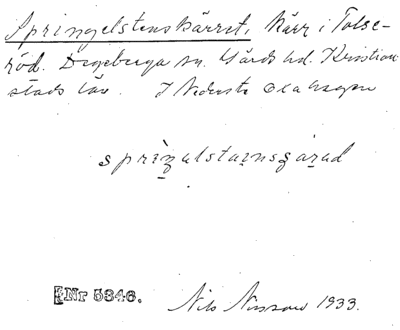 Springelstenskärret, kärr i Tolse-
röd. Degeberga sn. Gärds hd. Kristian
stads län. I Nedersta
sprɩŋəlstaɩnsçarəd
Nr 5346.
Nils Nilsson 1933.